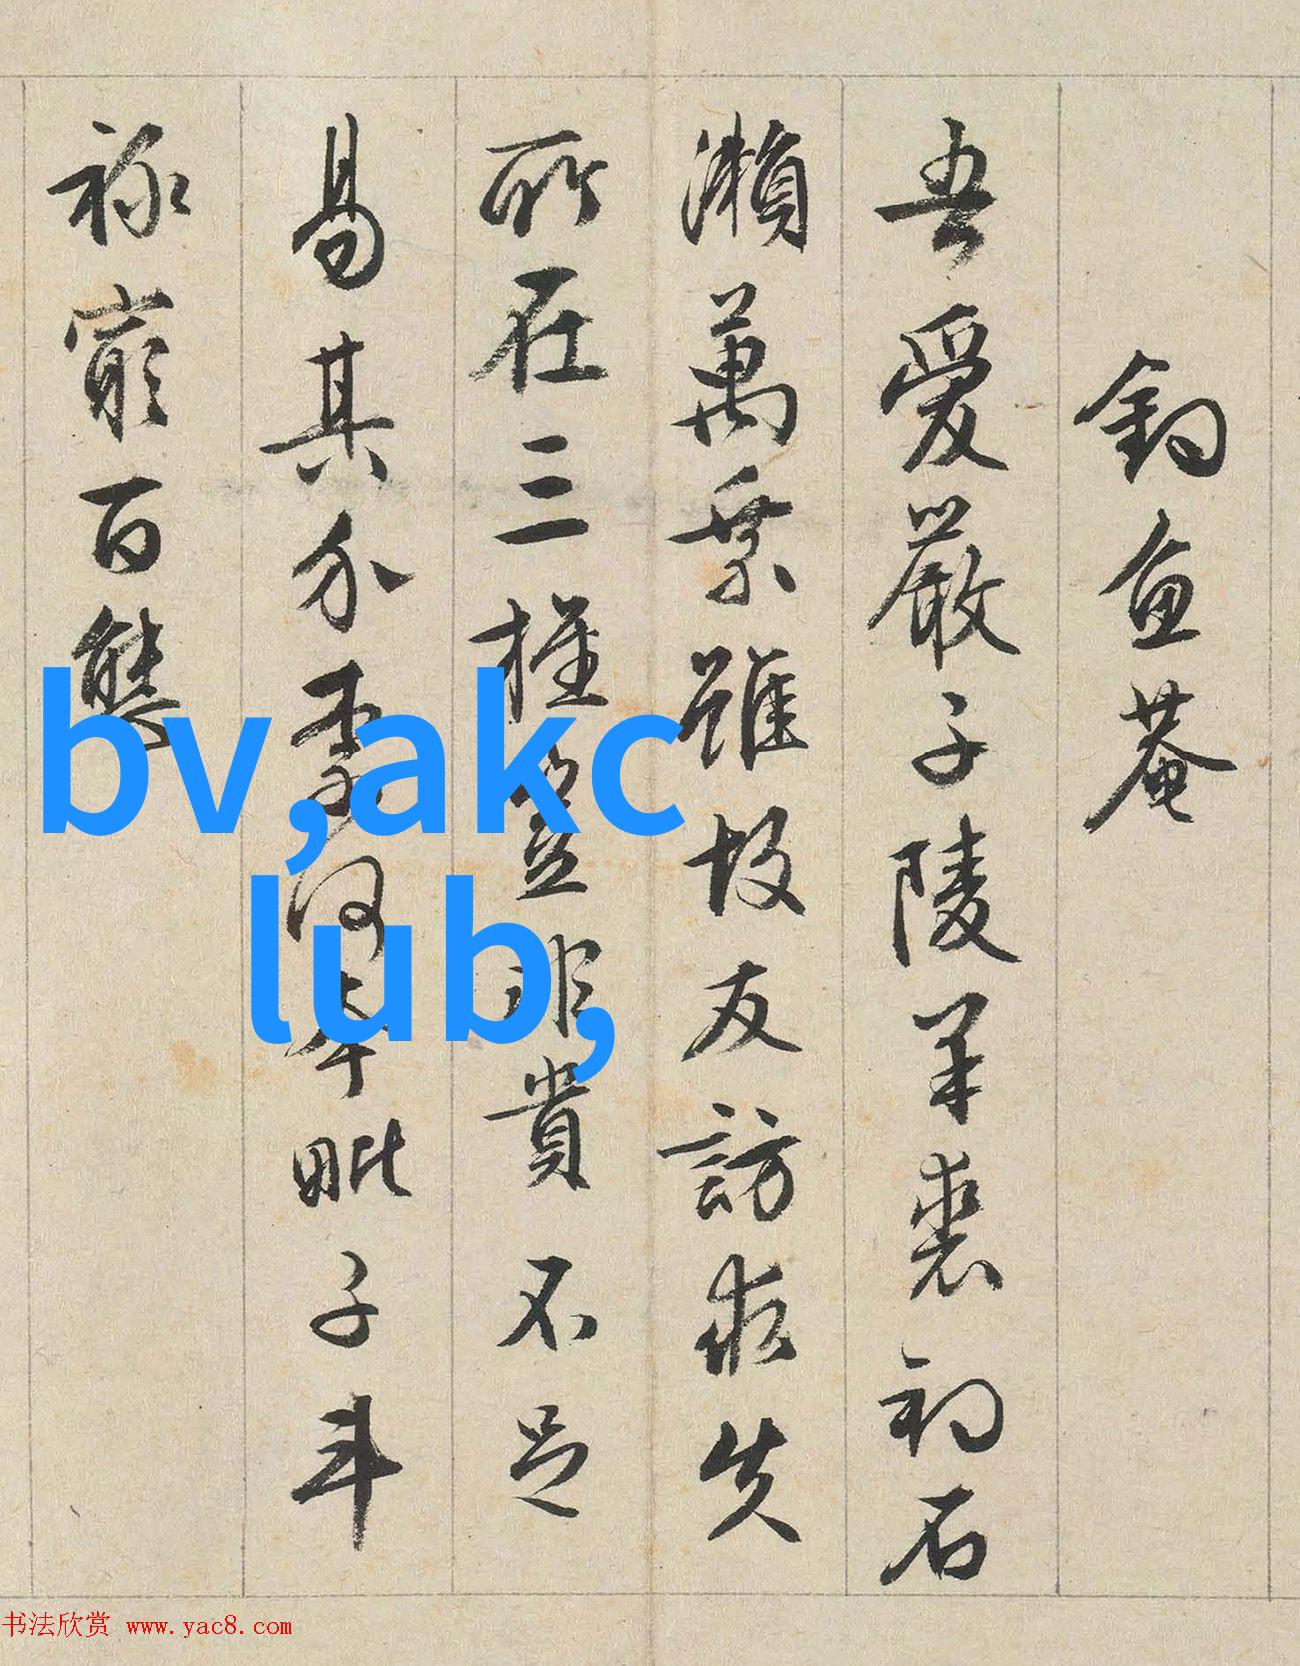 釣魚菴
吾愛嚴子陵羊裘釣石
瀨萬乘雖故友訪求失
所在三旌豈非貴不足
易其介柰何夸毗子斗
祿窮百態
bv,akc
lub,
书法欣赏 www.yac8.com